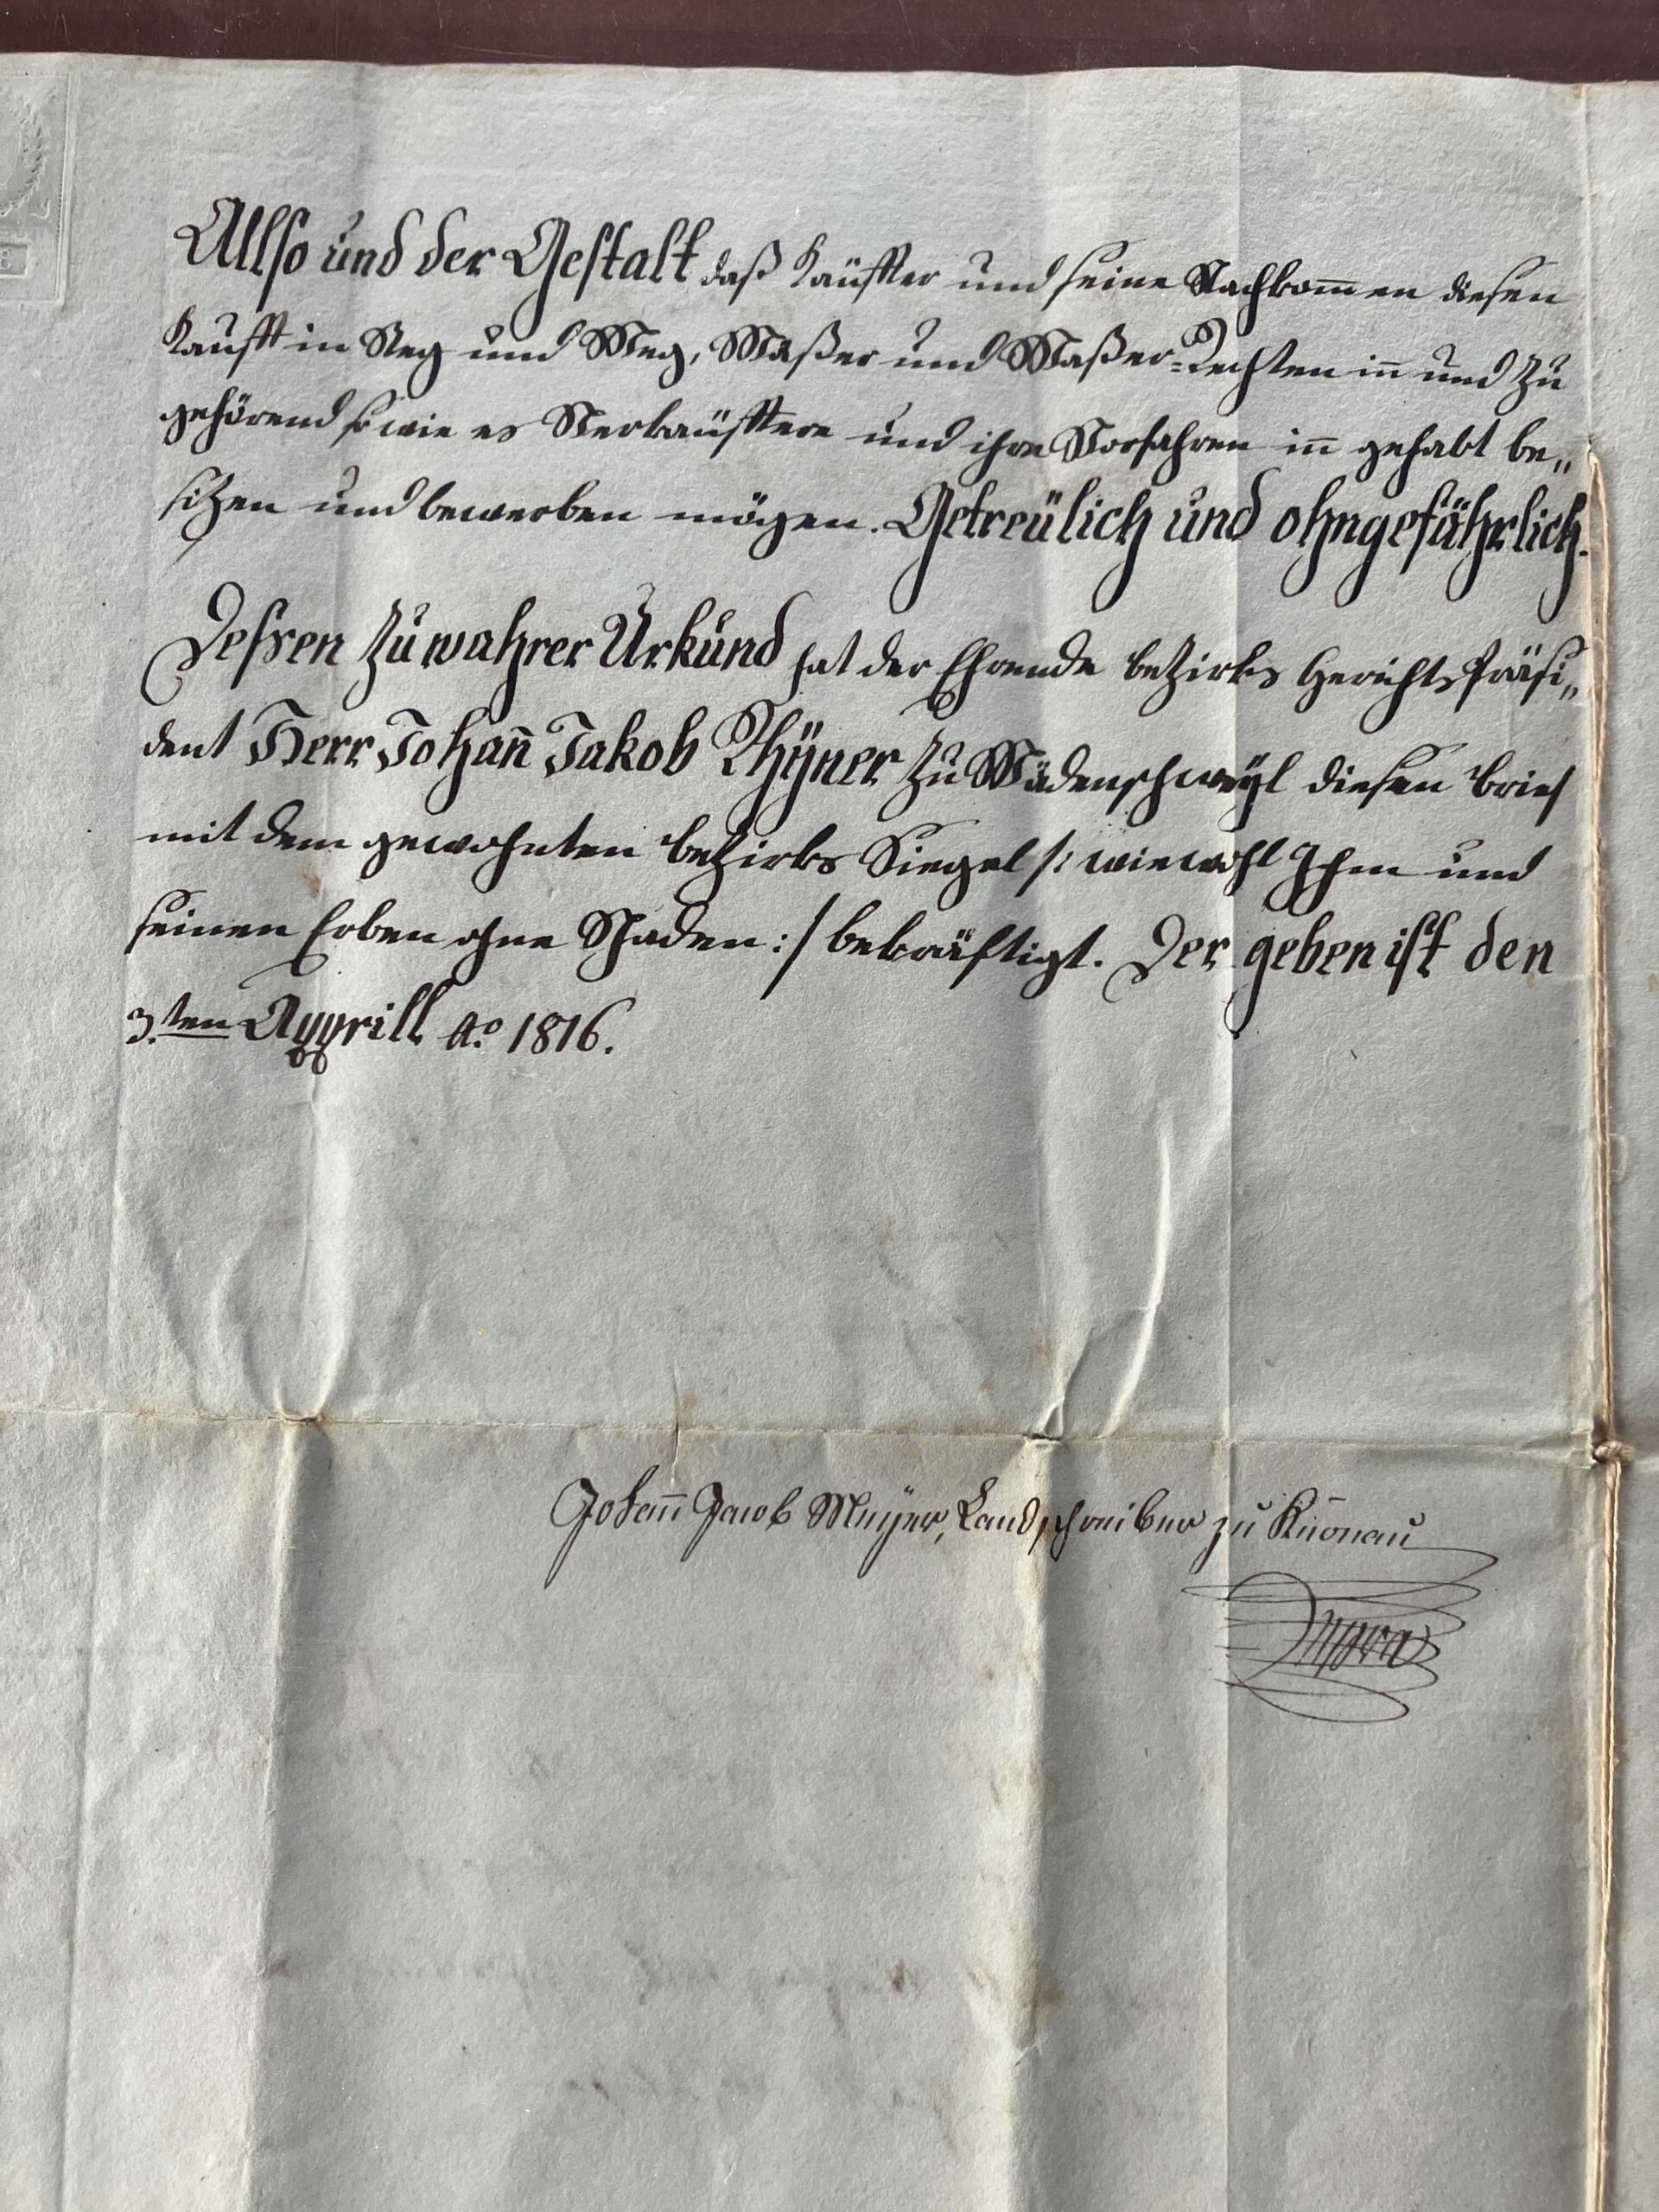 Allso und der Gestalt daß Käuffer und seine Nachkom̅en diesen
Kaufft in Steg und Weg, Waßer und Waßer=Rechten in̅ und zu
gehörend so wie es Verkäuffere und ihre Vorfahren in̅ gehabt be„
sitzen und bewerben mögen. Getreülich und ohngefährlich.
Deßen zu wahrer Urkund hat der Ehrende bezirks Gerichts Präsi„
dent Herr Johan̅ Jakob Rhÿner zu Wädenschweÿl diesen brief
mit dem gewohnten bezirks Siegel /: wiewohl Ihm und
seinen Erben ohne Schaden :/ bekräftigt. Der geben ist den
3.ten Apprill Aº 1816.
Johan̅ Jacob Meÿer, Landschreiber zu Knonau
8